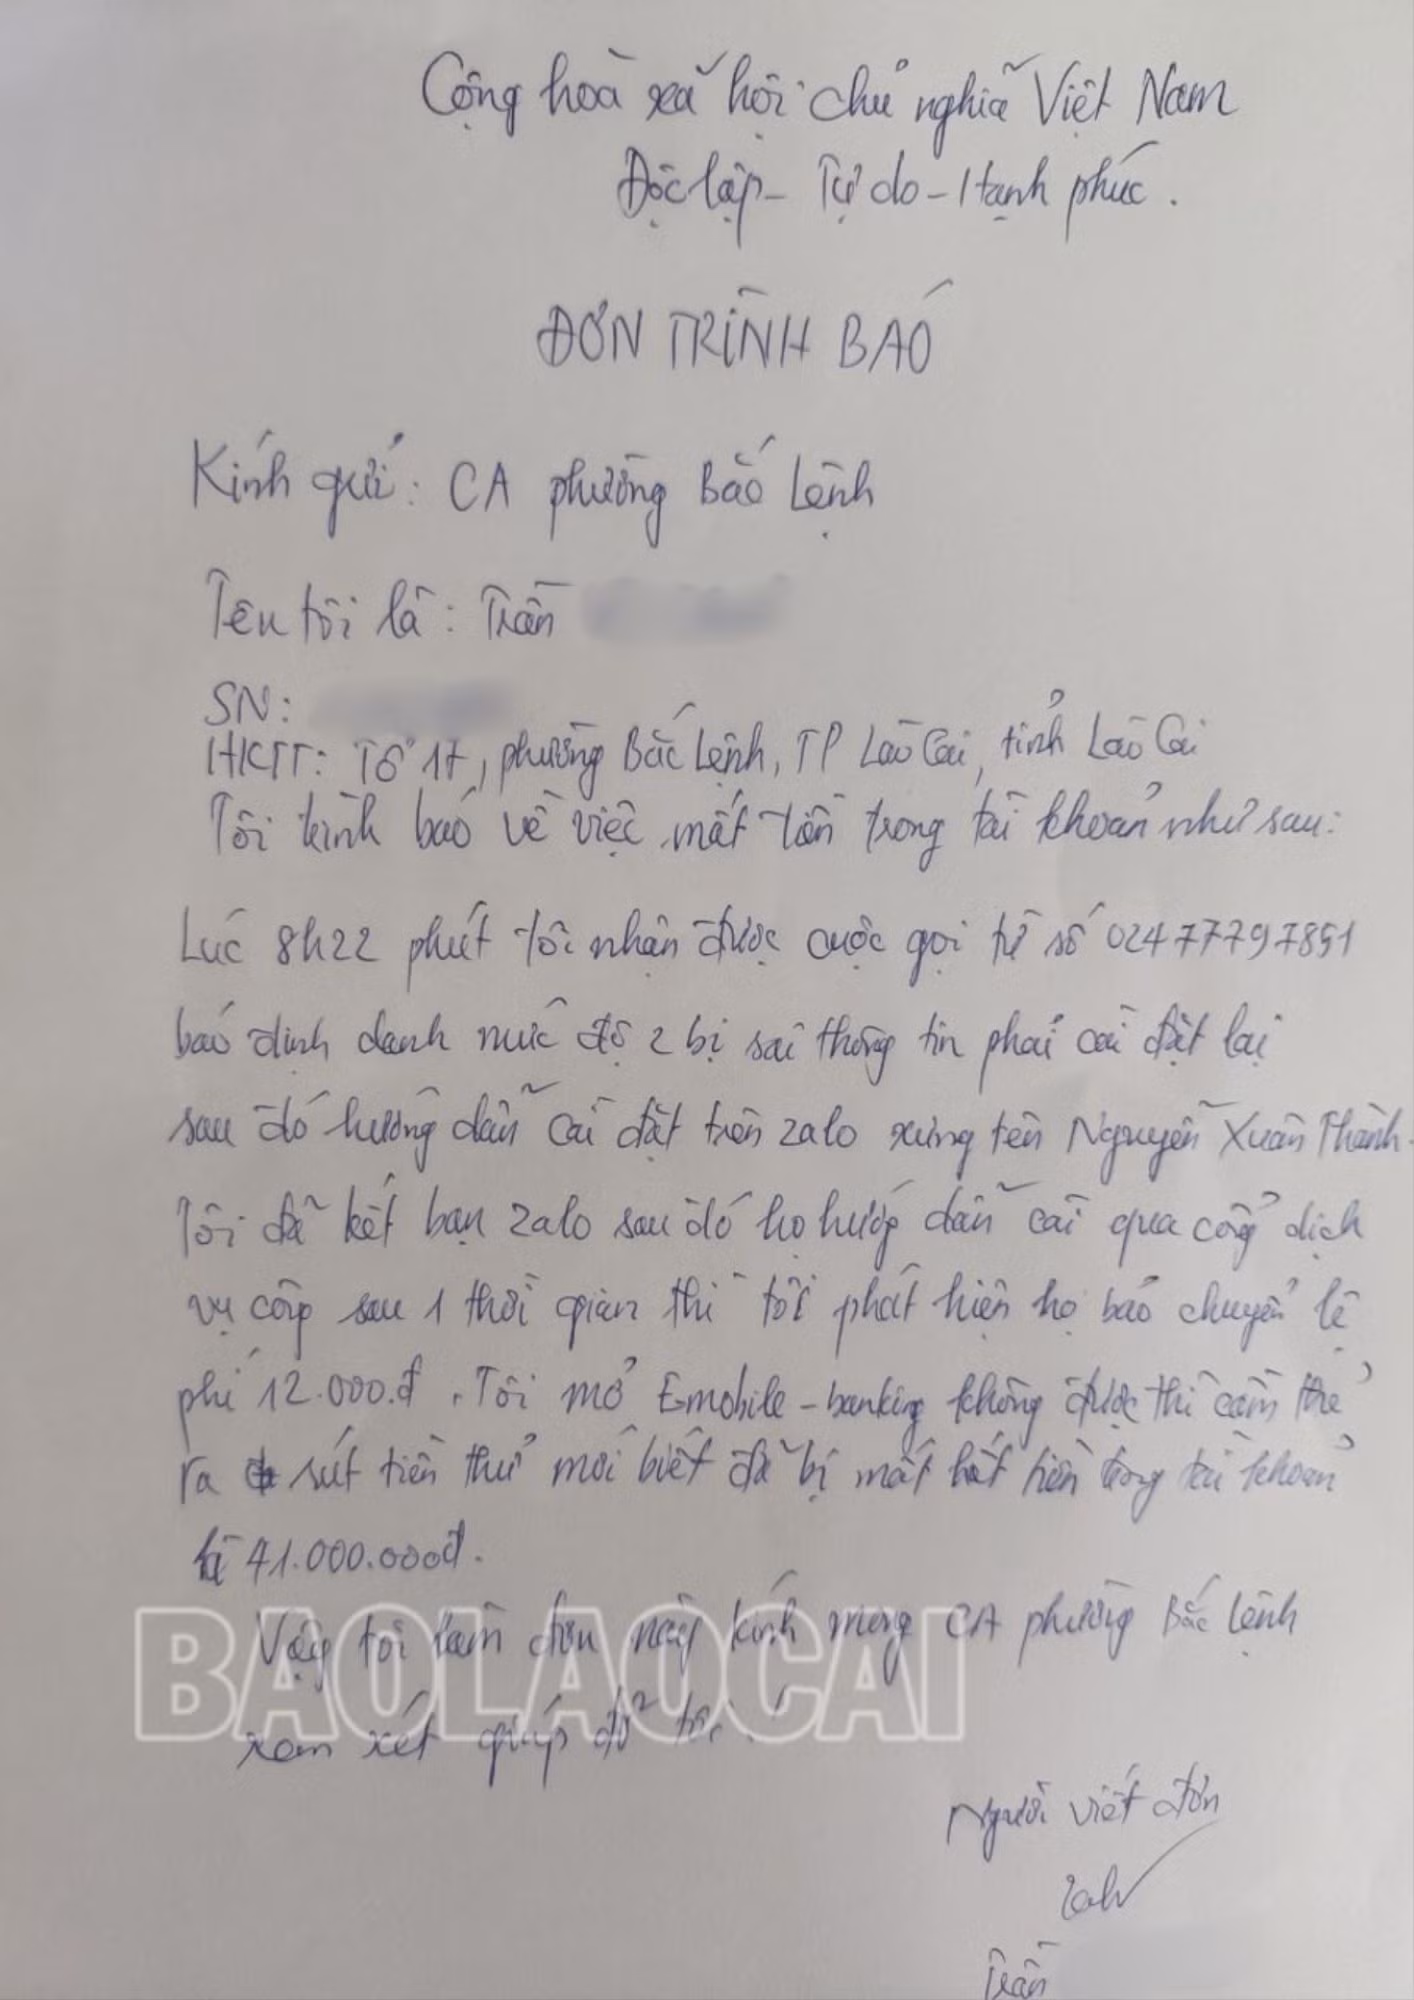 Cộng hoà xã hội chủ nghĩa Việt Nam
Độc lập - Tự do - Hạnh phúc.
ĐƠN TRÌNH BÁO
Kính gửi: CA phường Bắc Lệnh
Tên tôi là: Trần
SN:
HKTT: Tổ 17, phường Bắc Lệnh, TP Lào Cai, tỉnh Lào Cai
Tôi trình báo về việc mất tiền trong tài khoản như sau:
Lúc 8h22 phút tôi nhận được cuộc gọi từ số 02477797851
báo định danh mức độ 2 bị sai thông tin phải cài đặt lại
sau đó hướng dẫn cài đặt trên zalo xưng tên Nguyễn Xuân Thành.
Tôi đã kết bạn zalo sau đó họ hướng dẫn cài qua cổng dịch
vụ công sau 1 thời gian thì tôi phát hiện họ báo chuyển lệ
phí 12.000.đ. Tôi mở Emobile-banking không được thì cầm thẻ
ra rút tiền thử mới biết đã bị mất hết tiền trong tài khoản
là 41.000.000đ.
Vậy tôi làm đơn này kính mong CA phường Bắc Lệnh
xem xét giúp đỡ tôi.
BAOLAOCAI
Người viết đơn
Trần